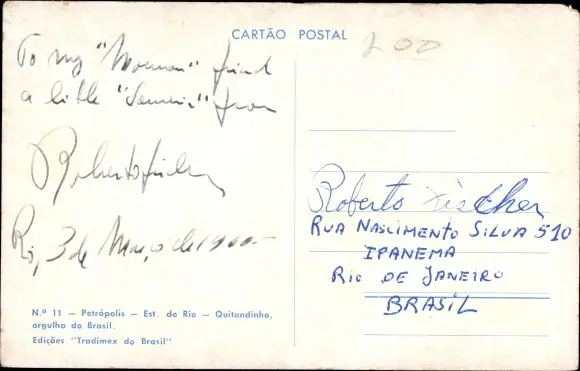 CARTÃO POSTAL
200
To my "Mormon" friend
a little "Souvenir" from
Roberto Fischer
Rio, 3 de Março de
Roberto Fischer
RUA NASCIMENTO SILVA 510
IPANEMA
RIO DE JANEIRO
BRASIL
N.º 11 — Petrópolis — Est. do Rio — Quitandinha,
orgulho do Brasil.
Edições "Tradimex do Brasil"